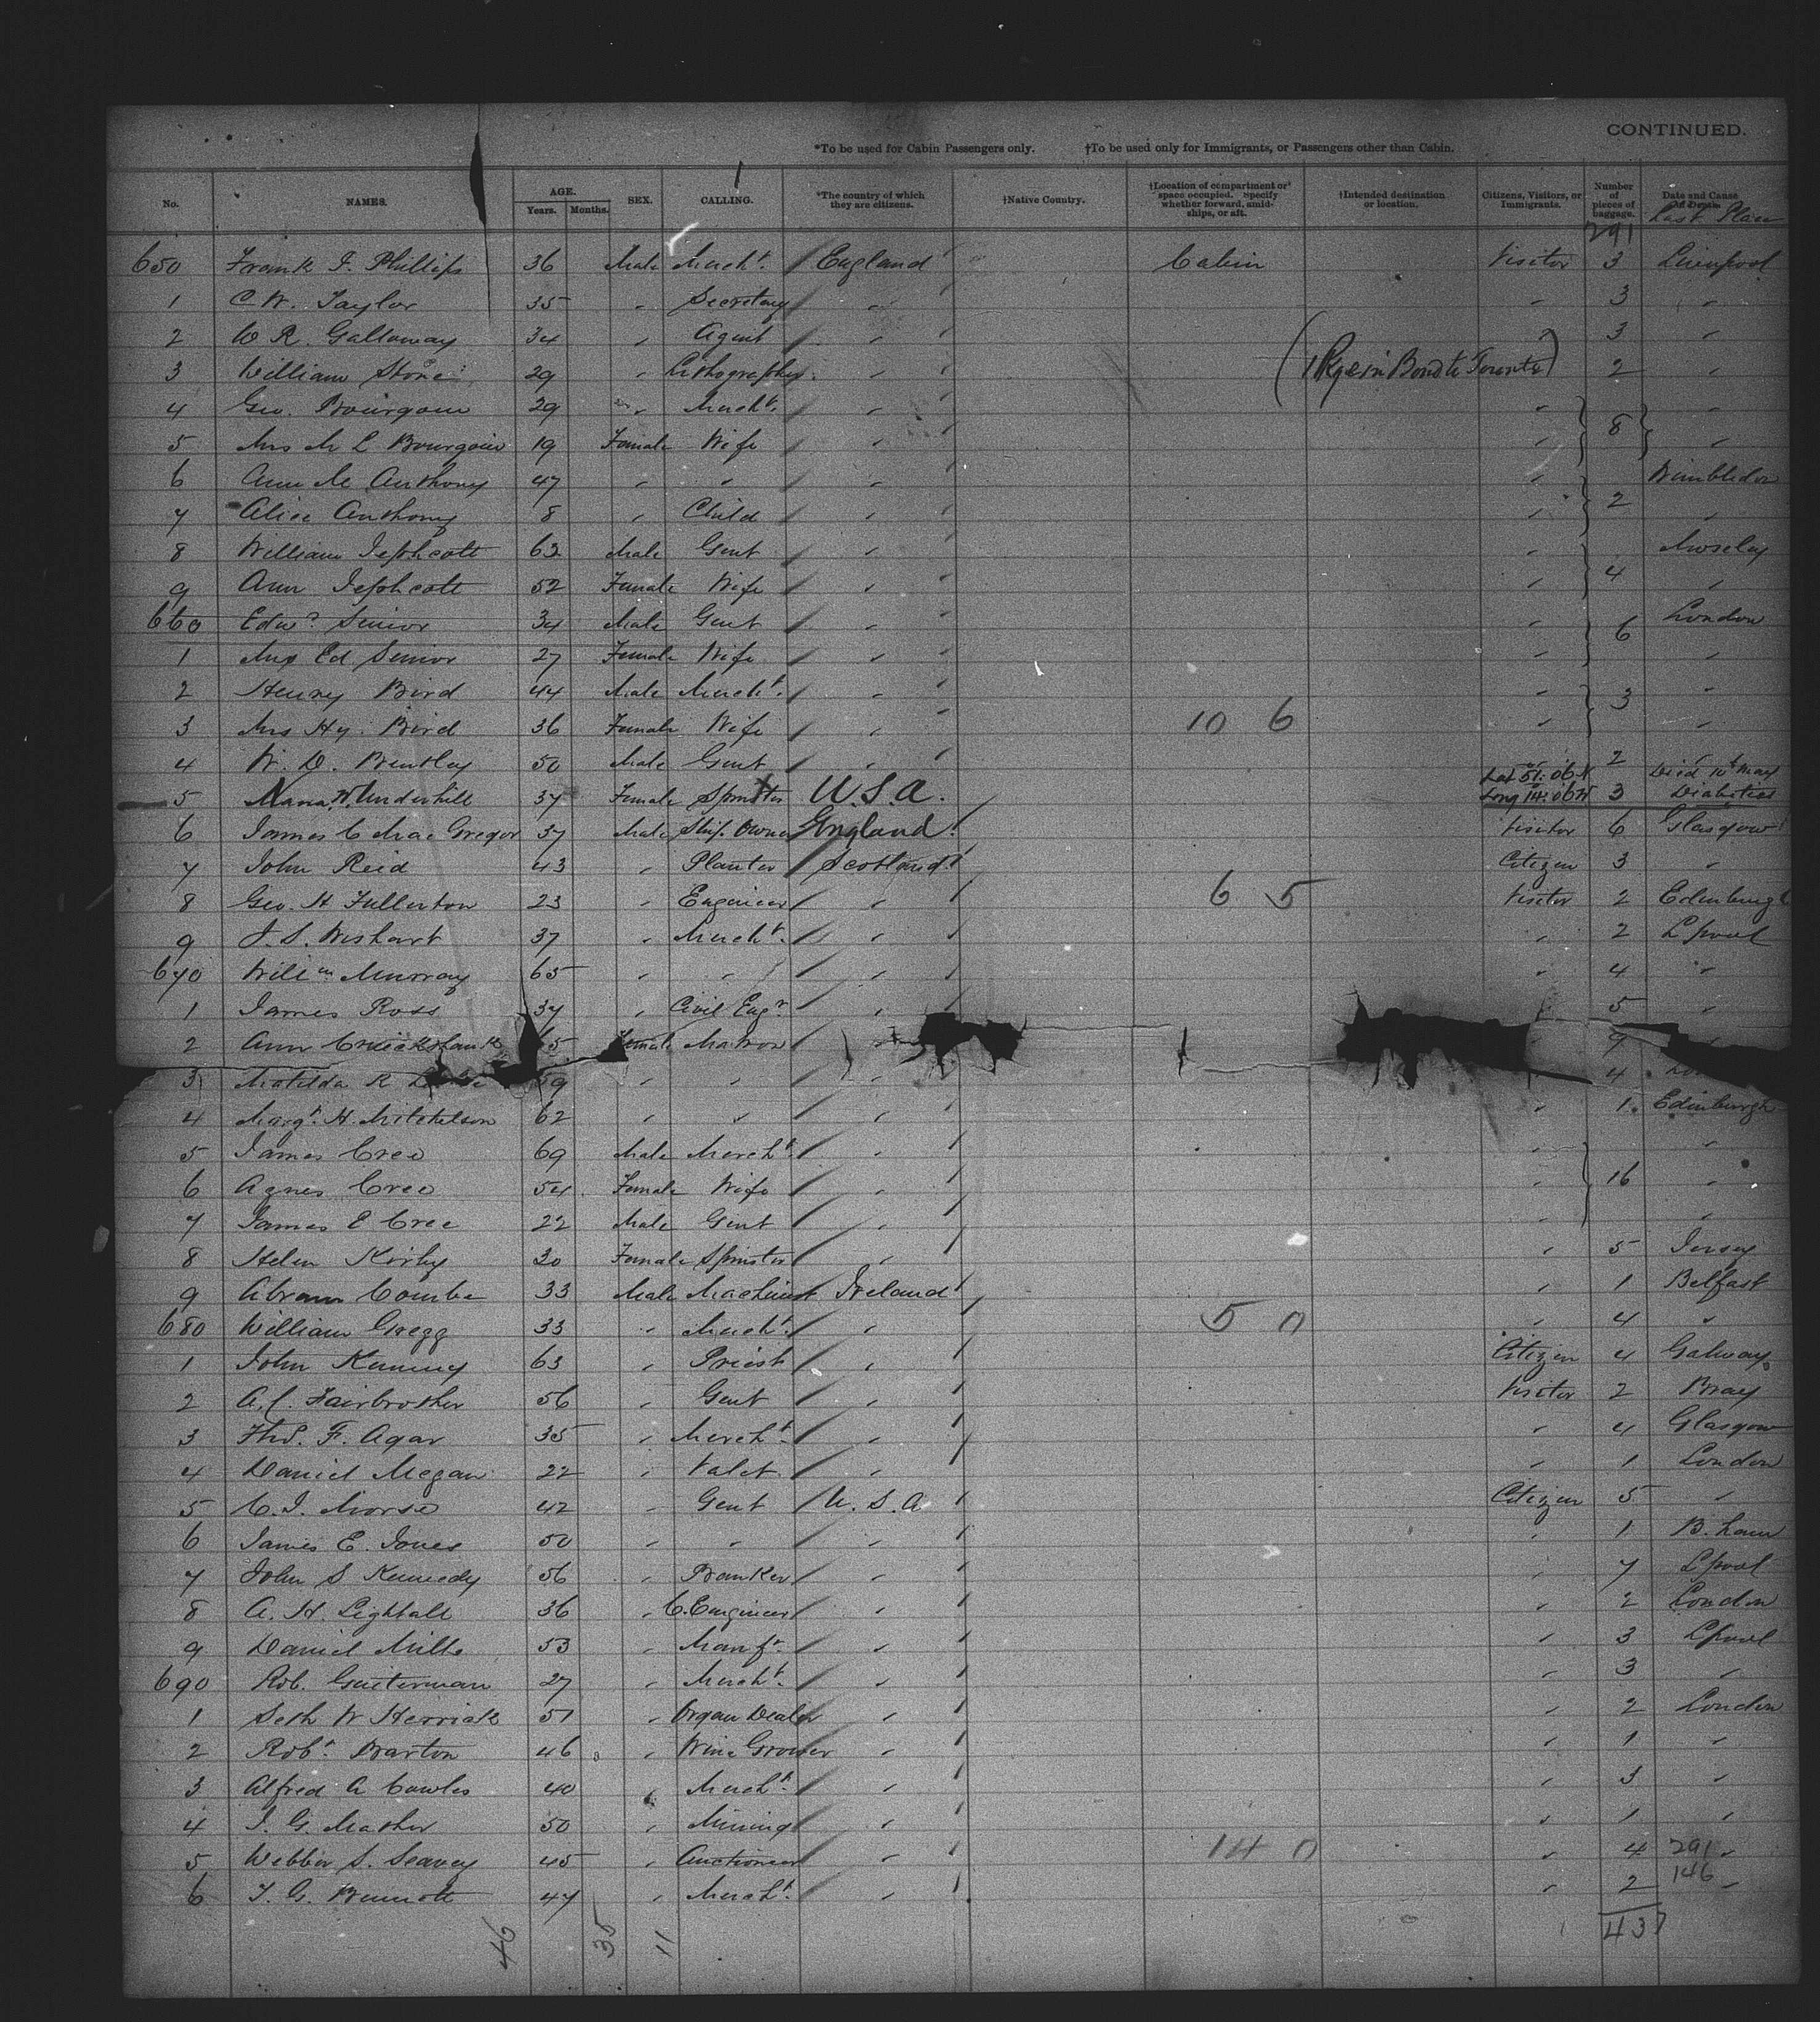 CONTINUED.
*To be used for Cabin Passengers only. †To be used only for Immigrants, or Passengers other than Cabin.
No. NAMES. AGE. Years. Months. SEX. CALLING. *The country of which they are citizens. †Native Country. †Location of compartment or space occupied. Specify whether forward, amidships, or aft. †Intended destination or location. Citizens, Visitors, or Immigrants. Number of pieces of baggage. Date and Cause of Death. Last Place
291
650 Frank J. Phillips 36 Male Mercht. England Cabin Visitor 3 Liverpool
1 C. W. Taylor 35 " Secretary " " 3 "
2 W R. Galloway 34 " Agent " " 3 "
3 William Stone 29 " Lithographer " (1 Pkge in Bond to Toronto) 2 "
4 Geo. Bourgoin 29 " Mercht. " " 8 "
5 Mrs M L Bourgoin 19 Female Wife " " "
6 Ann M Anthony 47 " " " " 2 Wimbledon
7 Alice Anthony 8 " Child " " "
8 William Jephcott 63 Male Gent " " 4 Moseley
9 Ann Jephcott 52 Female Wife " " "
660 Edwd Senior 34 Male Gent " " 6 London
1 Mrs Ed Senior 27 Female Wife " " "
2 Henry Bird 44 Male Mercht. " " 3 "
3 Mrs Hy. Bird 36 Female Wife " 10 6 " "
4 W. D. Bentley 50 Male Gent " " 2 "
5 Maria W. Underhill 37 Female Spinster U.S.A. Lat 51:06 N Long 14:06 W 3 Died 10th May Diabetics
6 James C MacGregor 37 Male Ship Owner England Visitor 6 Glasgow
7 John Reid 43 " Planter Scotland Citizen 3 "
8 Geo. H Fullerton 23 " Engineer " 6 5 Visitor 2 Edinburgh
9 J. S. Wishart 37 " Mercht. " " 2 Lpool
670 Willm Murray 65 " " " " 4 "
1 James Ross 37 " Civil Engr " " 5 "
2 Ann Cruickshank 65 Female Matron " 9 "
3 Matilda R 59 " " " " 4
4 Margt. H. Mitchelson 62 " " " " 1 Edinburgh
5 James Cree 69 Male Mercht. " " 16 "
6 Agnes Cree 54 Female Wife " " "
7 James E Cree 22 Male Gent " " "
8 Helen Kirby 30 Female Spinster " " 5 Jersey
9 Abram Combe 33 Male Machinist Ireland " 1 Belfast
680 William Gregg 33 " Mercht. " 5 0 " 4 "
1 John Kenny 63 " Priest " Citizen 4 Galway
2 A. C. Fairbrother 56 " Gent " Visitor 2 Bray
3 Thos. F. Agar 35 " Mercht. " " 4 Glasgow
4 Daniel Megan 22 " Valet " " 1 London
5 C. J. Morse 42 " Gent U.S.A Citizen 5 "
6 James E. Jones 50 " " " " 1 B. ham
7 John S Kennedy 56 " Banker " " 7 Lpool
8 A. H. Lightall 36 " C. Engineer " " 2 London
9 Daniel Mills 53 " Manfr. " " 3 Lpool
690 Rob. Guiterman 27 " Mercht. " " 3 "
1 Seth W Herrick 51 " Organ Dealer " " 2 London
2 Robt. Barton 46 " Wine Grower " " 1 "
3 Alfred A Cowles 40 " Mercht. " " 3 "
4 J. G. Mather 50 " Mining " " 1 "
5 Webber S. Seavey 45 " Auctioneer " 14 0 " 4 291 "
6 T. G. Bennett 47 " Mercht. " " 2 146 "
46 35 11 437